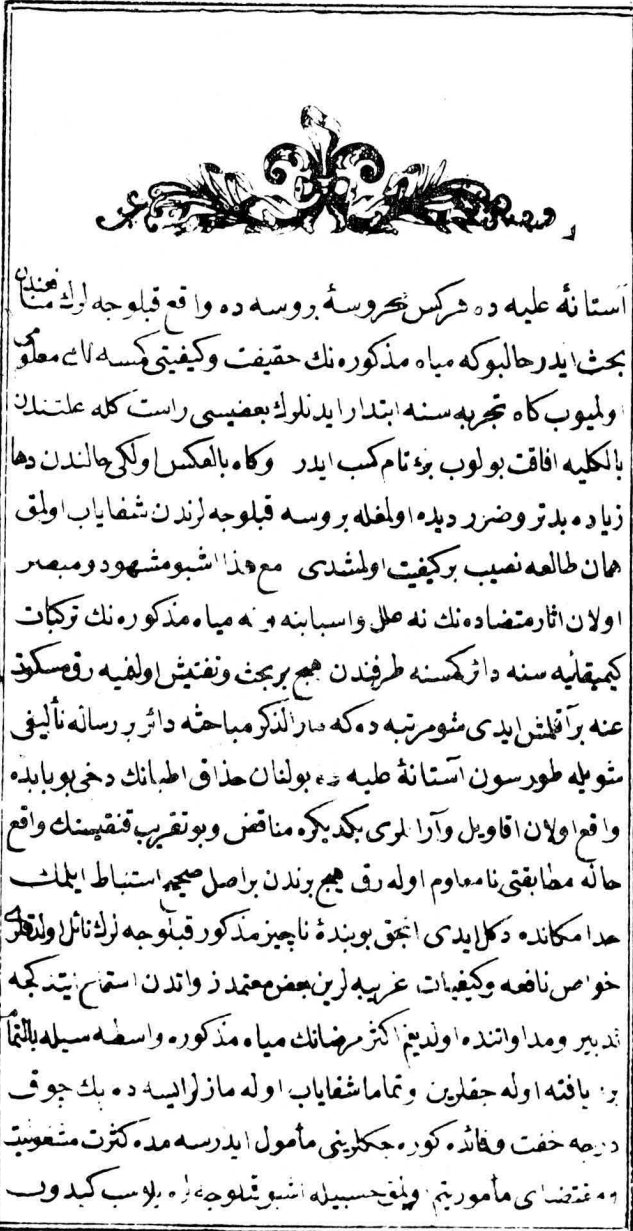 آستانهٔ علیه ده هرکس محروسهٔ بروسه ده واقع قبلوجه لرك منافعندن
بحث ایدر حالبوکه میاه مذکوره نك حقیقت وکیفیتی کمسه لك معلومی
اولمیوب کاه تجربه سنه ابتدار ایدنلرك بعضیسی راست کله علتندن
بالکلیه افاقت بولوب برء تام کسب ایدر وکاه بالعکس اولکی حالندن دها
زیاده بدتر وضرر دیده اولمغله بروسه قبلوجه لرندن شفایاب اولمق
همان طالعه نصیب برکیفیت اولمشدی مع هذا اشبو مشهود ومبصر
اولان اثار متضاده نك نه علل واسبابنه ونه میاه مذکوره نك ترکبات
کیمیائیه سنه دائر کمسنه طرفندن هیچ بر بحث وتفتیش اولنمیه رق مسکوت
عنه براقلمش ایدی شو مرتبه ده که سار الذکر مباحثه دائر بر رساله تألیفی
شویله طورسون آستانهٔ علیه ده بولنان حذاق اطبانك دخی بو بابده
واقع اولان اقاویل وآرا لری یکدیکره مناقض وبو تقریب قنقیسنك واقع
حاله مطابقتی نامعلوم اوله رق هیچ برندن بر اصل صحیح استنباط ایلمك
حد امکانده دکل ایدی انجق بو بندهٔ ناچیز مذکور قبلوجه لرك نائل اولدقلری
خواص نافعه وکیفیات غریبه لرین بعض معتمد ذواتدن استماع ایتدکجه
تدبیر ومداواتنده اولدیغم اکثر مرضانك میاه مذکوره واسطه سیله بالتمام
برء یافته اوله جقلرین وتماما شفایاب اوله مازلر ایسه ده پك چوق
درجه خفت وفائده کوره جکلرینی مأمول ایدرسه مده کثرت مشغولیت
ومقتضای مأموریتم اولمق حسبیله اشبو قبلوجه لره بالاسب کیدوب